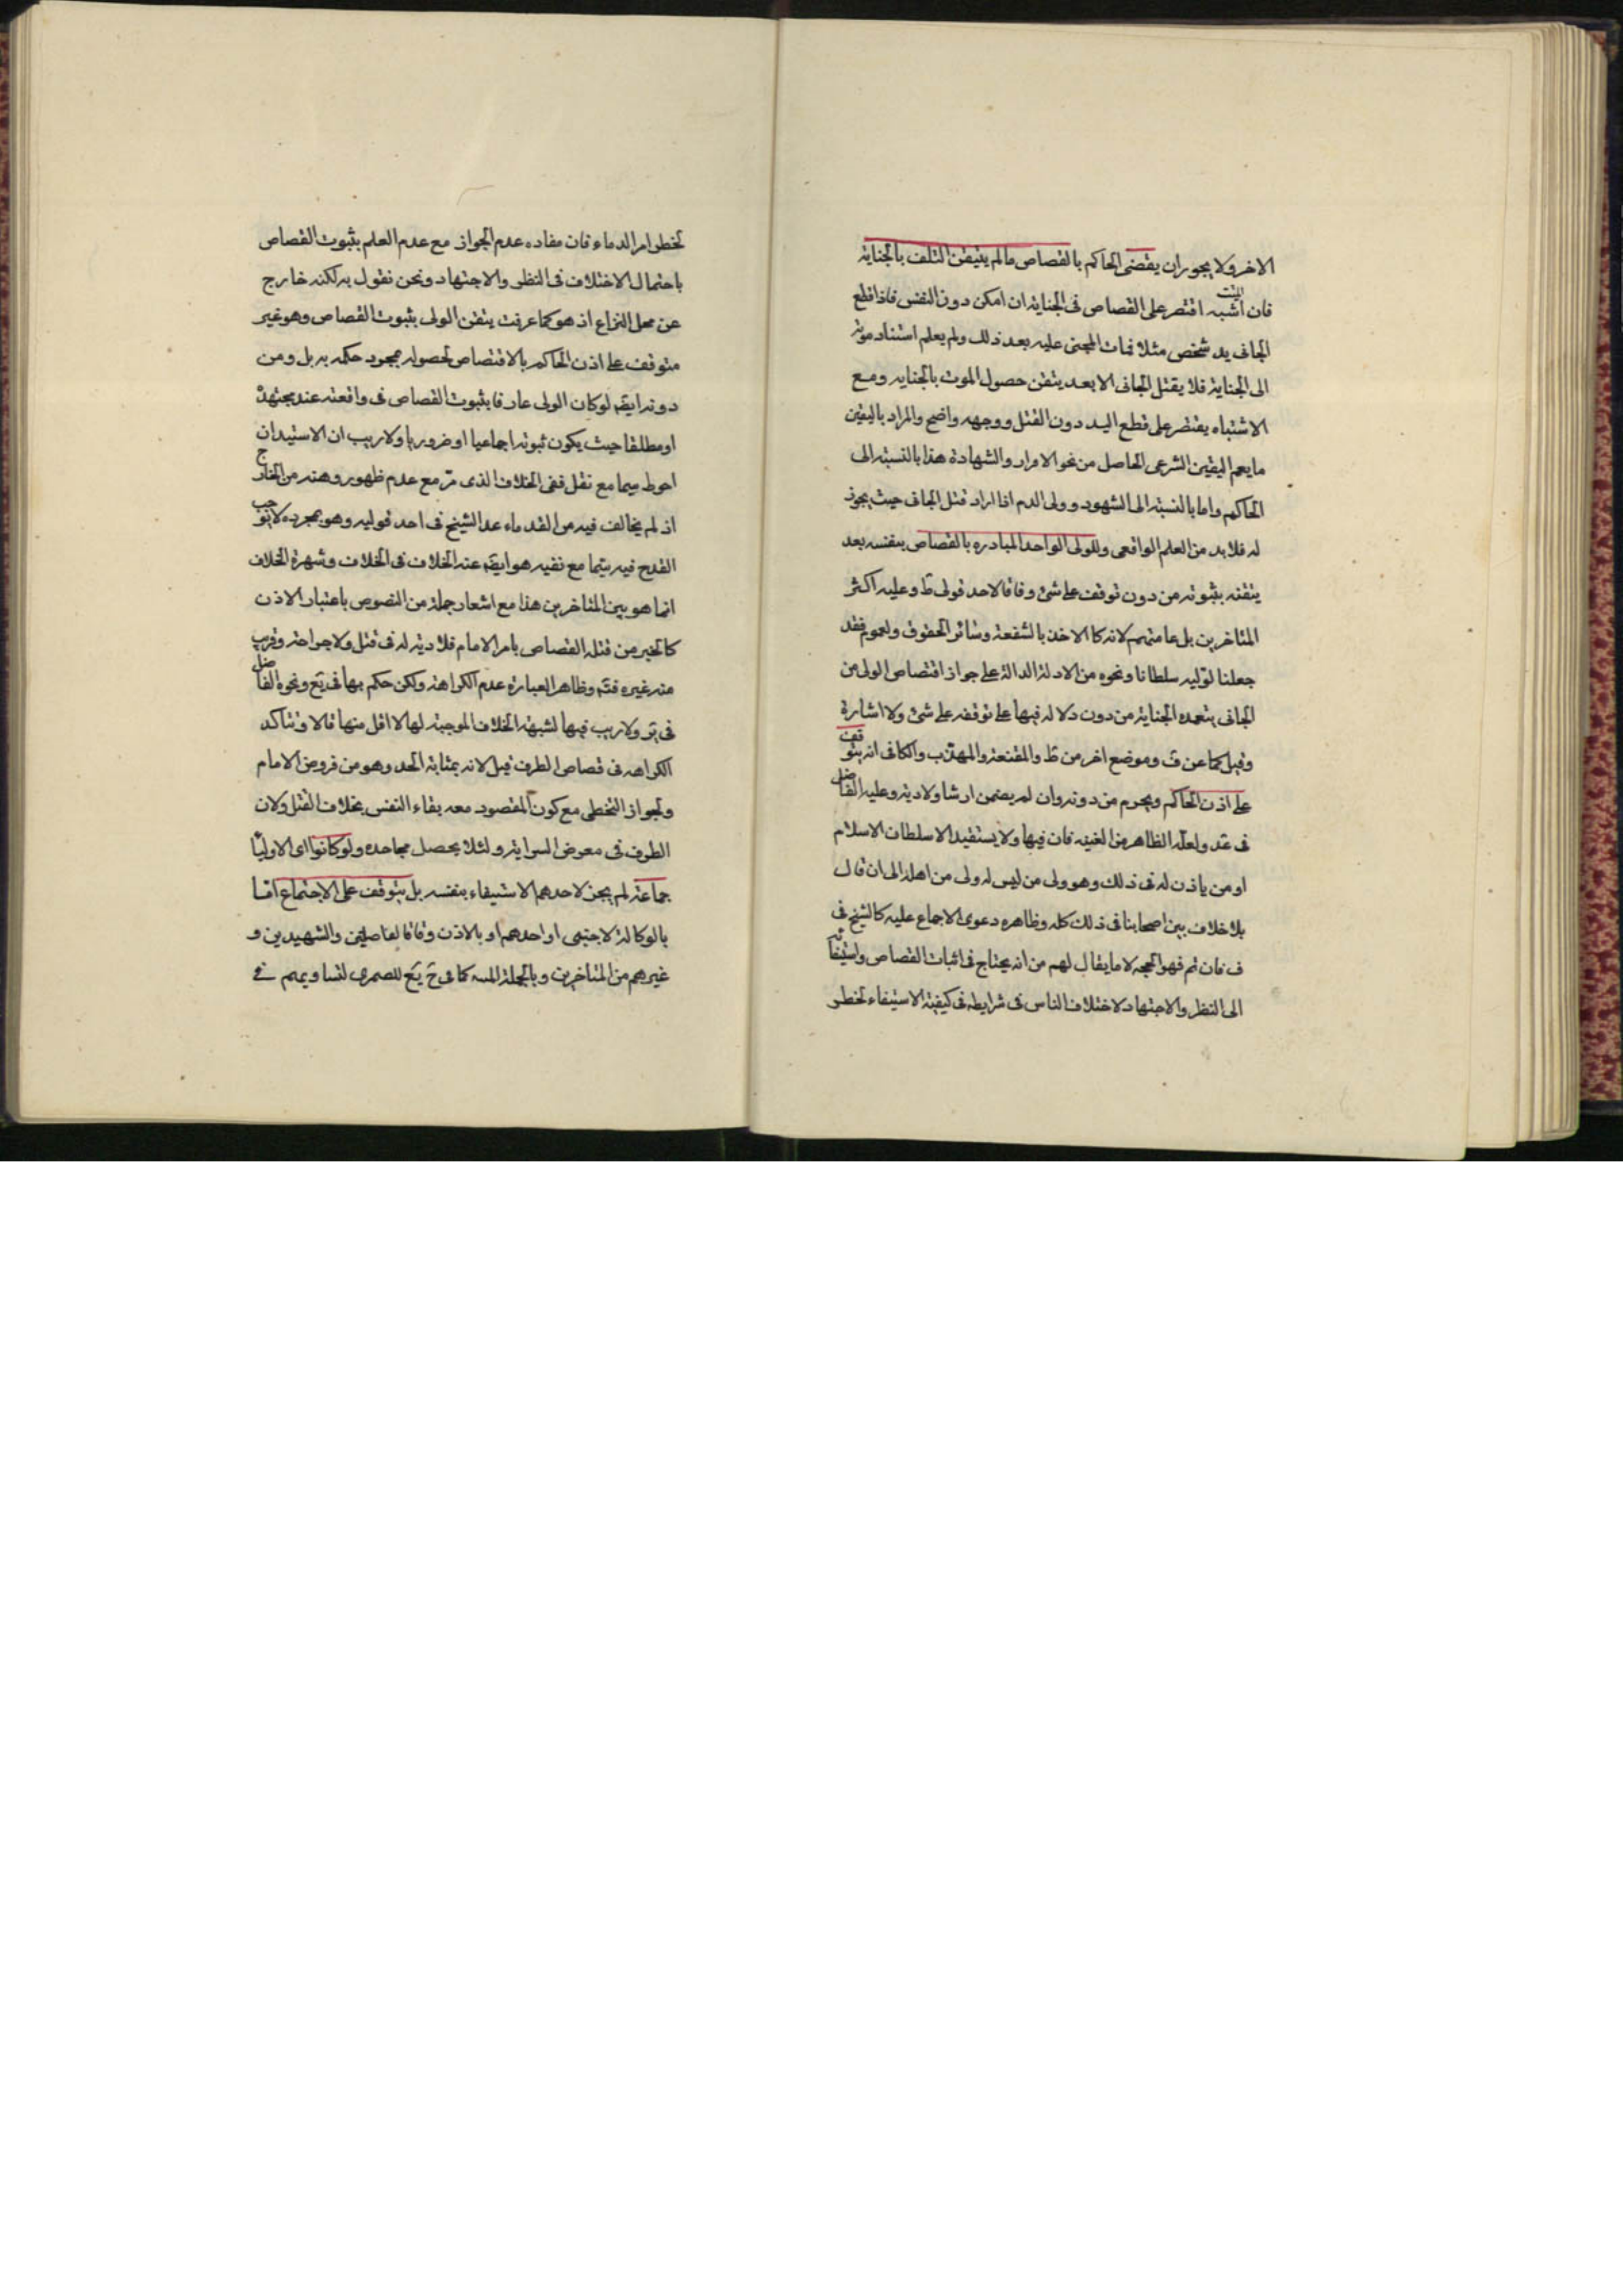 الاخر ولا يجوز ان يقضى الحاكم بالقصاص ما لم يتيقن التلف بالجناية
فان اشبه اقتصر على القصاص فى الجناية ان امكن دون النفس فاذا قطع
الجانى يد شخص مثلا فمات المجنى عليه بعد ذلك ولم يعلم استناد موته
الى الجناية فلا يقتل الجانى الا بعد يتقن حصول الموت بالجنايه ومع
الاشتباه يقتصر على قطع اليد دون القتل ووجهه واضح والمراد باليقين
ما يعم اليقين الشرعى الحاصل من نحو الاقرار والشهادة هذا بالنسبة الى
الحاكم واما بالنسبة الى الشهود وولى الدم اذا اراد قتل الجانى حيث يجوز
له فلا بد من العلم الواقعى وللولى الواحد المبادره بالقصاص بنفسه بعد
يتقنه بثبوته من دون توقف على شئ وفاقا لاحد قولى ط وعليه اكثر
المتاخرين بل عامتهم لانه كالاخذ بالشفعة وسائر الحقوق ولعموم فقد
جعلنا لوليه سلطانا ونحوه من الادلة الدالة على جواز اقتصاص الولى من
الجانى بتعمده الجناية من دون دلاله فيها على توقفه على شئ ولا اشارة
وقيل كما عن ف وموضع اخر من ط والمقنعة والمهذب والكافى انه يتوقف
على اذن الحاكم ويحرم من دونه وان لم يضمن ارشا ولا دية وعليه الفاضل
فى عد ولعله الظاهر من الغنيه فان فيها ولا يستقيد الا سلطان الاسلام
او من ياذن له فى ذلك وهو ولى من ليس له ولى من اهله الى ان قال
بلا خلاف بين اصحابنا فى ذلك كله وظاهره دعوى الاجماع عليه كالشيخ فى
ف فان تم فهو الحجه لا ما يقال لهم من انه يحتاج فى اثبات القصاص واستيفائه
الى النظر والاجتهاد لاختلاف الناس فى شرايطه فى كيفية الاستيفاء لخطر
لخطر امر الدماء فان مفاده عدم الجواز مع عدم العلم بثبوت القصاص
باحتمال الاختلاف فى النظر والاجتهاد ونحن نقول به لكنه خارج
عن محل النزاع اذ هو كما عرفت يتقن الولى بثبوت القصاص وهو غير
متوقف على اذن الحاكم بالاقتصاص لحصوله بمجرد حكمه به بل ومن
دونه ايضا لو كان الولى عارفا بثبوت القصاص فى واقعته عند مجتهده
او مطلقا حيث يكون ثبوته اجماعيا او ضروريا ولا ريب ان الاستيذان
احوط سيما مع نقل نفى الخلاف الذى مر مع عدم ظهور وهنه من الخارج
اذ لم يخالف فيه من القدماء عدا الشيخ فى احد قوليه وهو بمجرده لا يوجب
القدح فيه سيما مع نفيه هو ايضا عنه الخلاف فى الخلاف وشهرة الخلاف
انما هو بين المتاخرين هذا مع اشعار جملة من النصوص باعتبار الاذن
كالخبر من قتله القصاص بامر الامام فلا دية له فى قتل ولا جراحة وقريب
منه غيره فتم وظاهر العبارة عدم الكراهة ولكن حكم بها فى يع ونحوه الفاضل
فى ولا ريب فيها لشبهة الخلاف الموجبة لها لا اقل منها قالا وتتاكد
الكراهه فى قصاص الطرف قيل لانه بمثابة الحد وهو من فروض الامام
ولجواز التخطى مع كون المقصود معه بقاء النفس بخلاف القتل ولان
الطرف فى معرض السراية ولئلا يحصل مجاحده ولو كانوا اى الاوليا
جماعة لم يجز لاحدهم الاستيفاء بنفسه بل يتوقف على الاجتماع اما
بالوكالة لاجنبى او احدهم او بالاذن وفاقا لفاضلين والشهيدين و
غيرهم من المتاخرين وبالجملة كما فى للصمرى لتساويهم فى